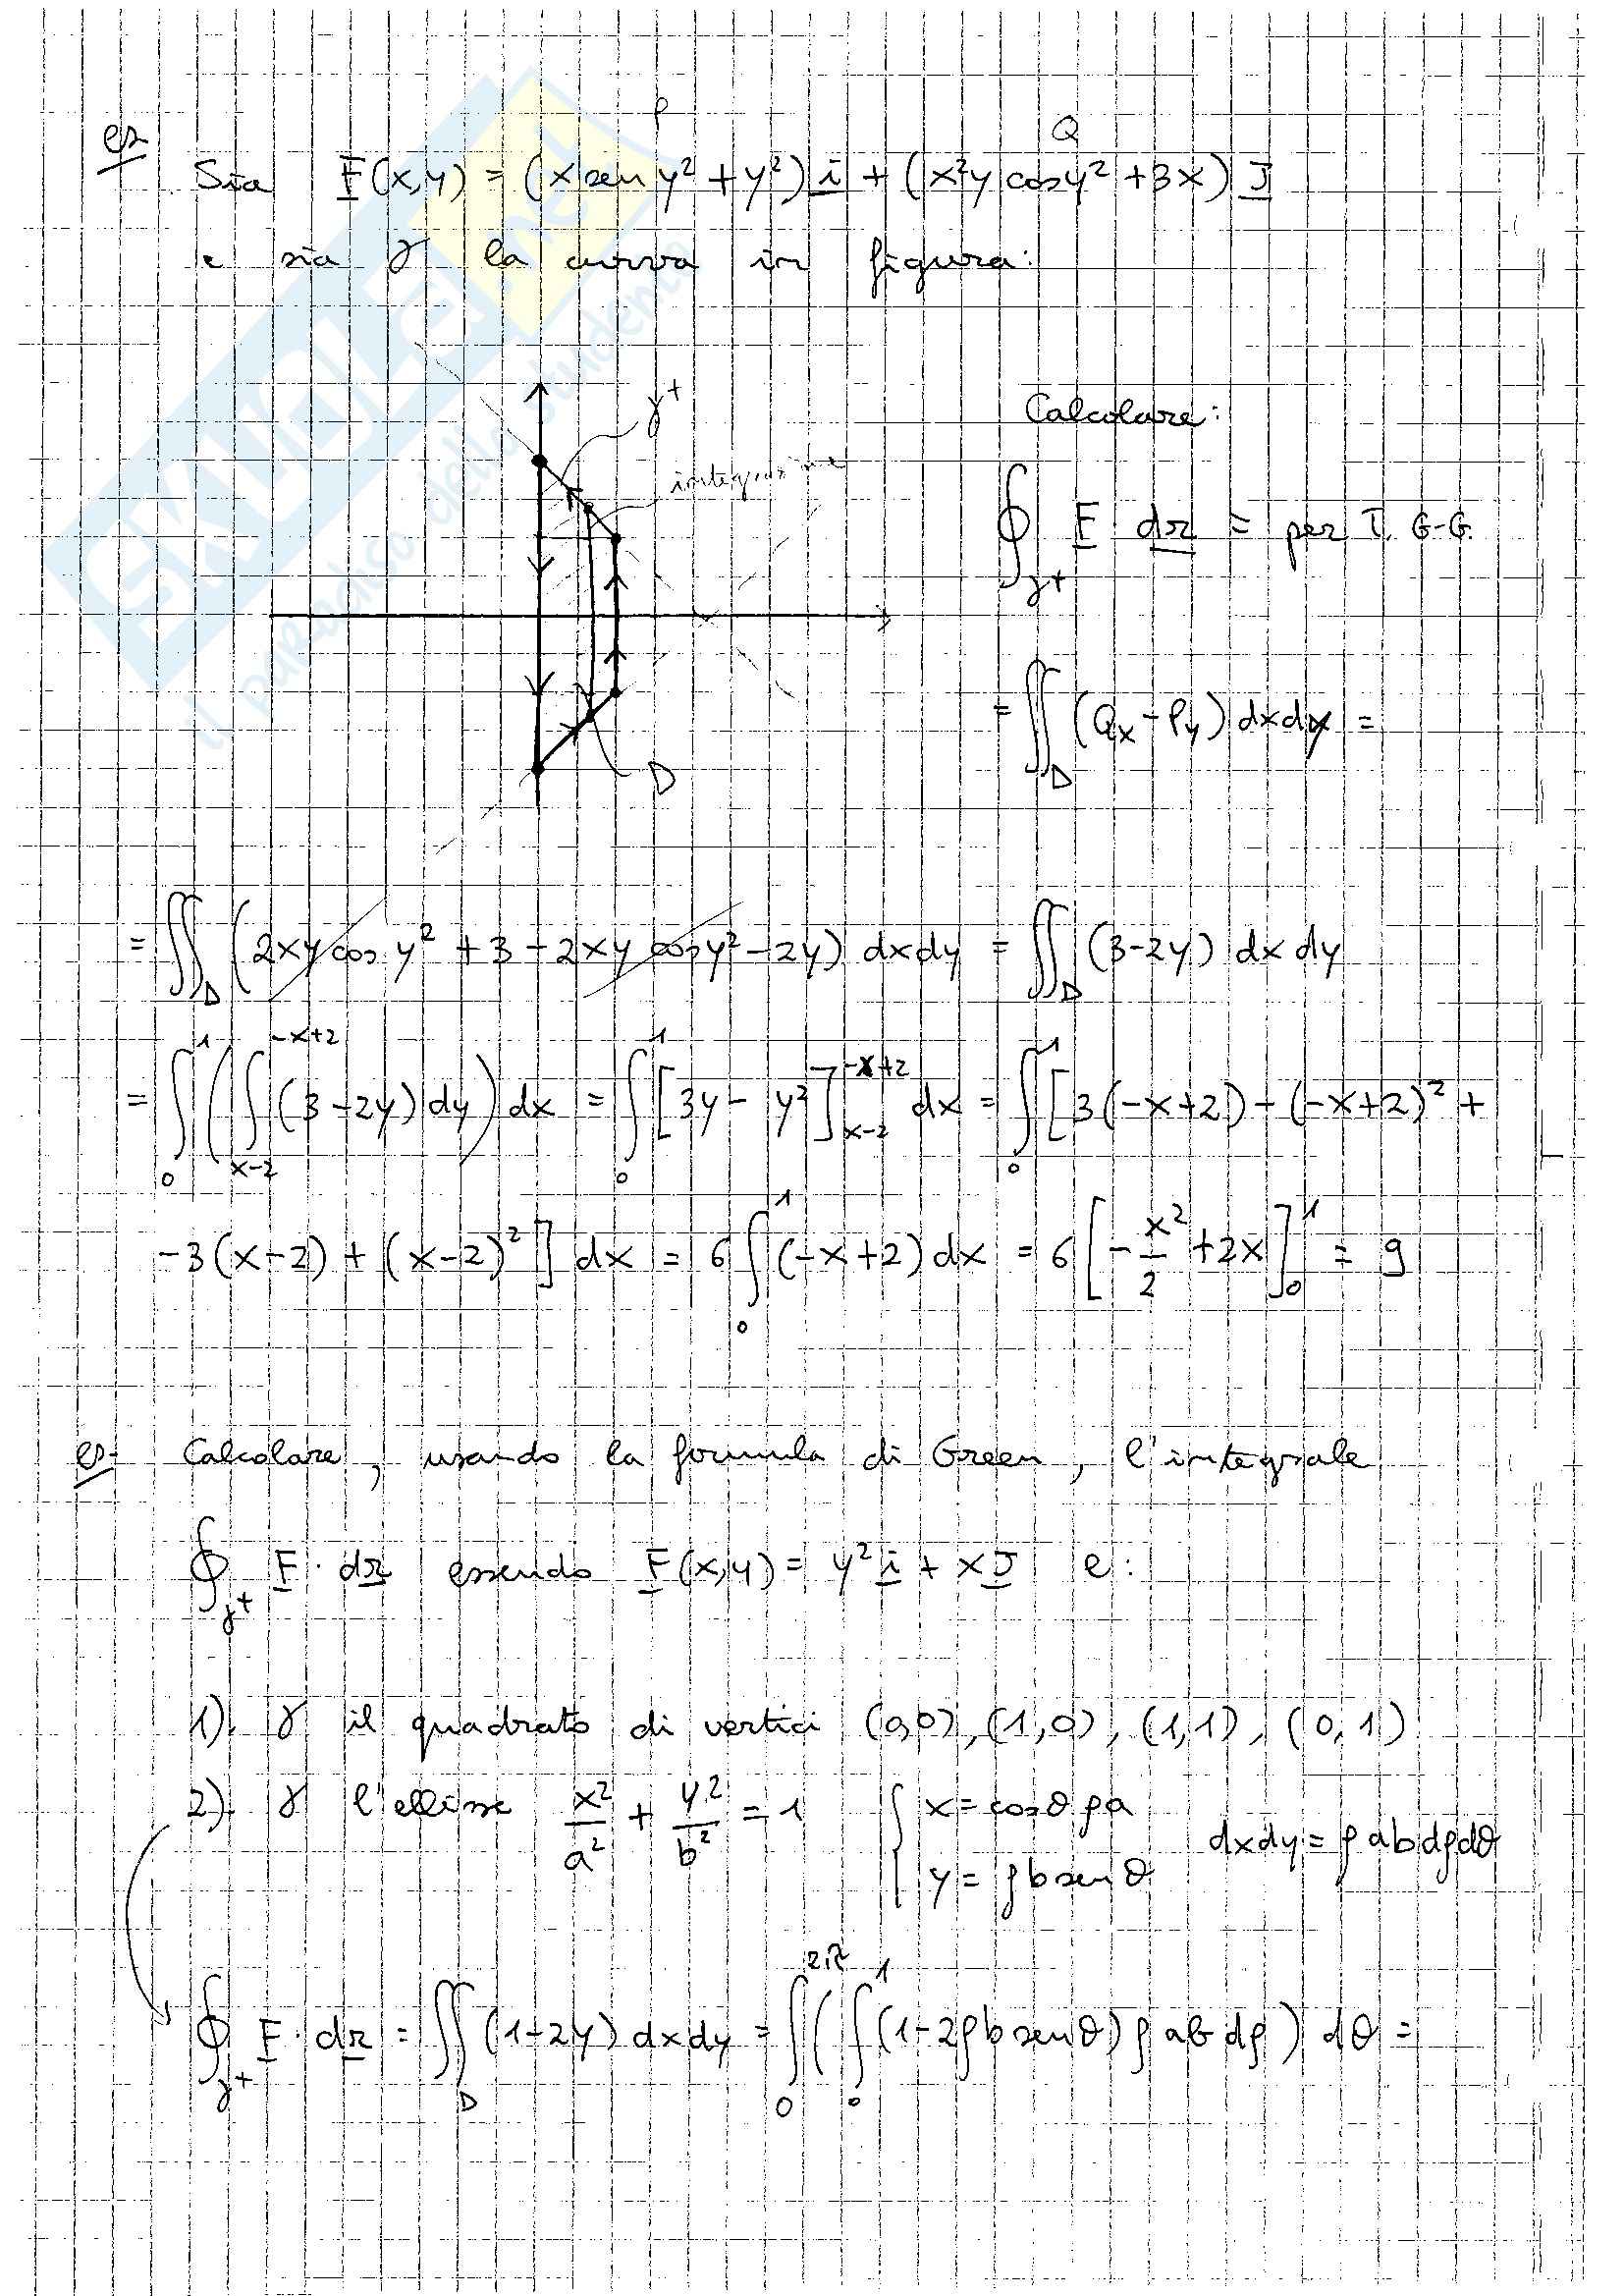 es Sia F(x,y) = (x sen y² + y²) i + (x²y cos y² + 3x) J
P
Q
e sia γ la curva in figura:
γ+
integrazione
D
Calcolare:
∮γ+ F · dr = per T. G-G.
= ∬D (Qx - Py) dxdy =
= ∬D (2xy cos y² + 3 - 2xy cos y² - 2y) dxdy = ∬D (3-2y) dx dy
= ∫₀¹ ( ∫_{x-2}^{-x+2} (3-2y) dy ) dx = ∫₀¹ [3y - y²]_{x-2}^{-x+2} dx = ∫₀¹ [3(-x+2) - (-x+2)² +
-3(x-2) + (x-2)²] dx = 6 ∫₀¹ (-x+2) dx = 6 [-x²/2 + 2x]₀¹ = 9
es- Calcolare, usando la formula di Green, l'integrale
∮γ+ F · dr essendo F(x,y) = y² i + x J e:
1). γ il quadrato di vertici (0,0), (1,0), (1,1), (0,1)
2). γ l'ellisse x²/a² + y²/b² = 1 { x = cosθ ρa y = ρ b sen θ dxdy = ρ ab dρdθ
∮γ+ F · dr = ∬D (1-2y) dxdy = ∫₀^{2π} ( ∫₀¹ (1-2ρb senθ) ρ ab dρ ) dθ =
SKUOLA.net
il paradiso dello studente